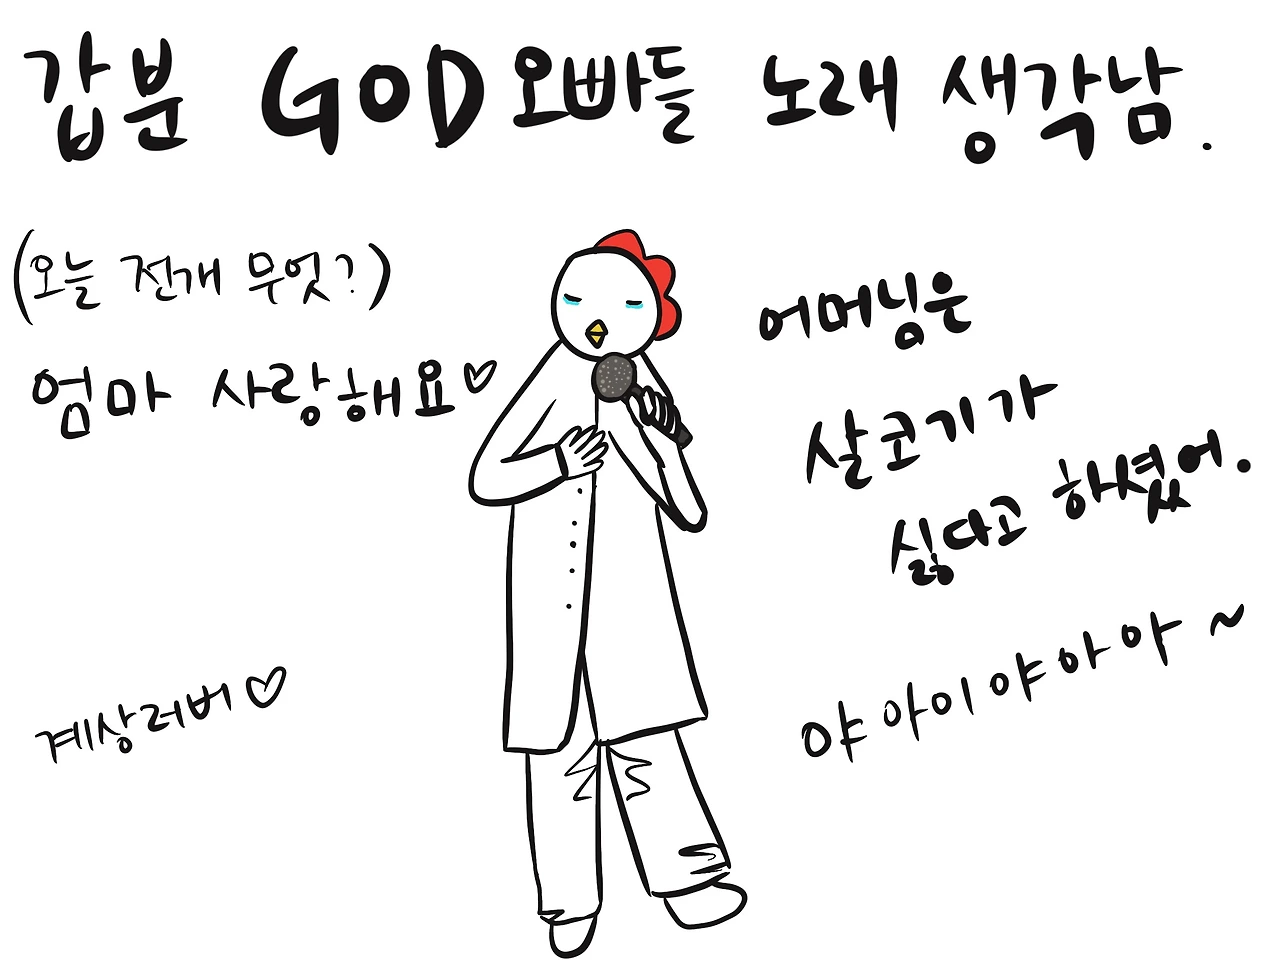 갑분 GOD 오빠들 노래 생각남.
(오늘 전개 무엇?)
엄마 사랑해요♡
어머님은
살코기가
싫다고 하셨어.
야 아이야아아~
계상러버♡